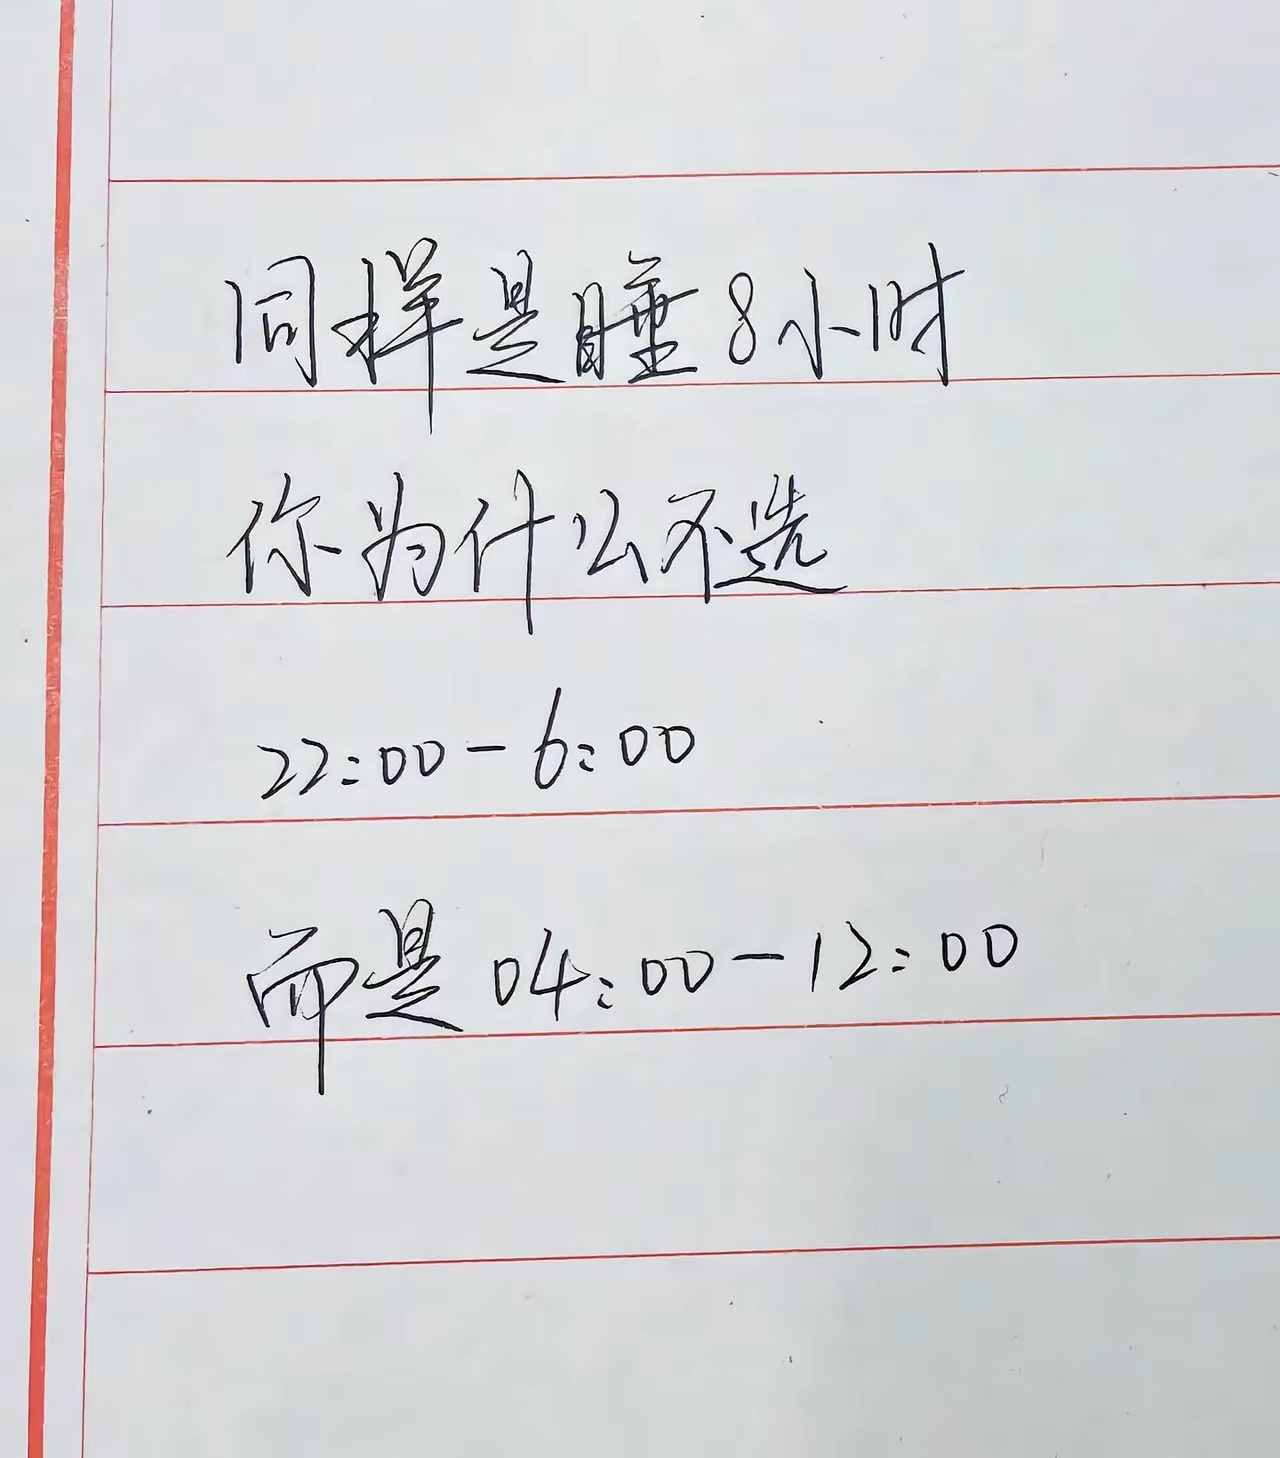 同样是睡8小时
你为什么不选
22:00-6:00
而是04:00-12:00